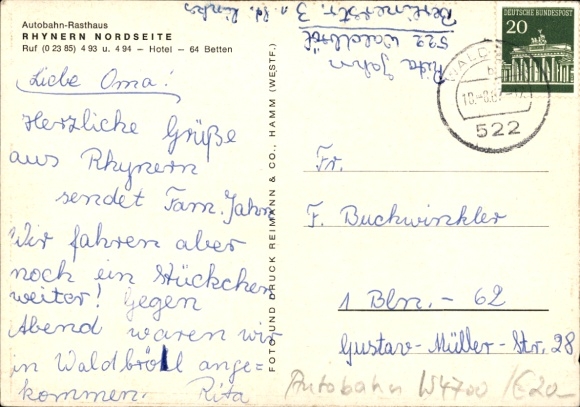 Autobahn-Rasthaus
RHYNERN NORDSEITE
Ruf (0 23 85) 4 93 u. 4 94 – Hotel – 64 Betten
Liebe Oma!
Herzliche Grüße
aus Rhynern
sendet Fam. Jahn
Wir fahren aber
noch ein Stückchen
weiter! Gegen
Abend waren wir
in Waldbröl ange=
kommen. Rita
Rita Jahn
522 Waldbröl
Berlinerstr. 3 links
FOTO UND DRUCK REIMANN & CO., HAMM (WESTF.)
DEUTSCHE BUNDESPOST
20
WALD
522
Fr.
F. Buckwinkler
1 Bln. - 62
Gustav-Müller-Str. 28
Autobahn W4700 /E20